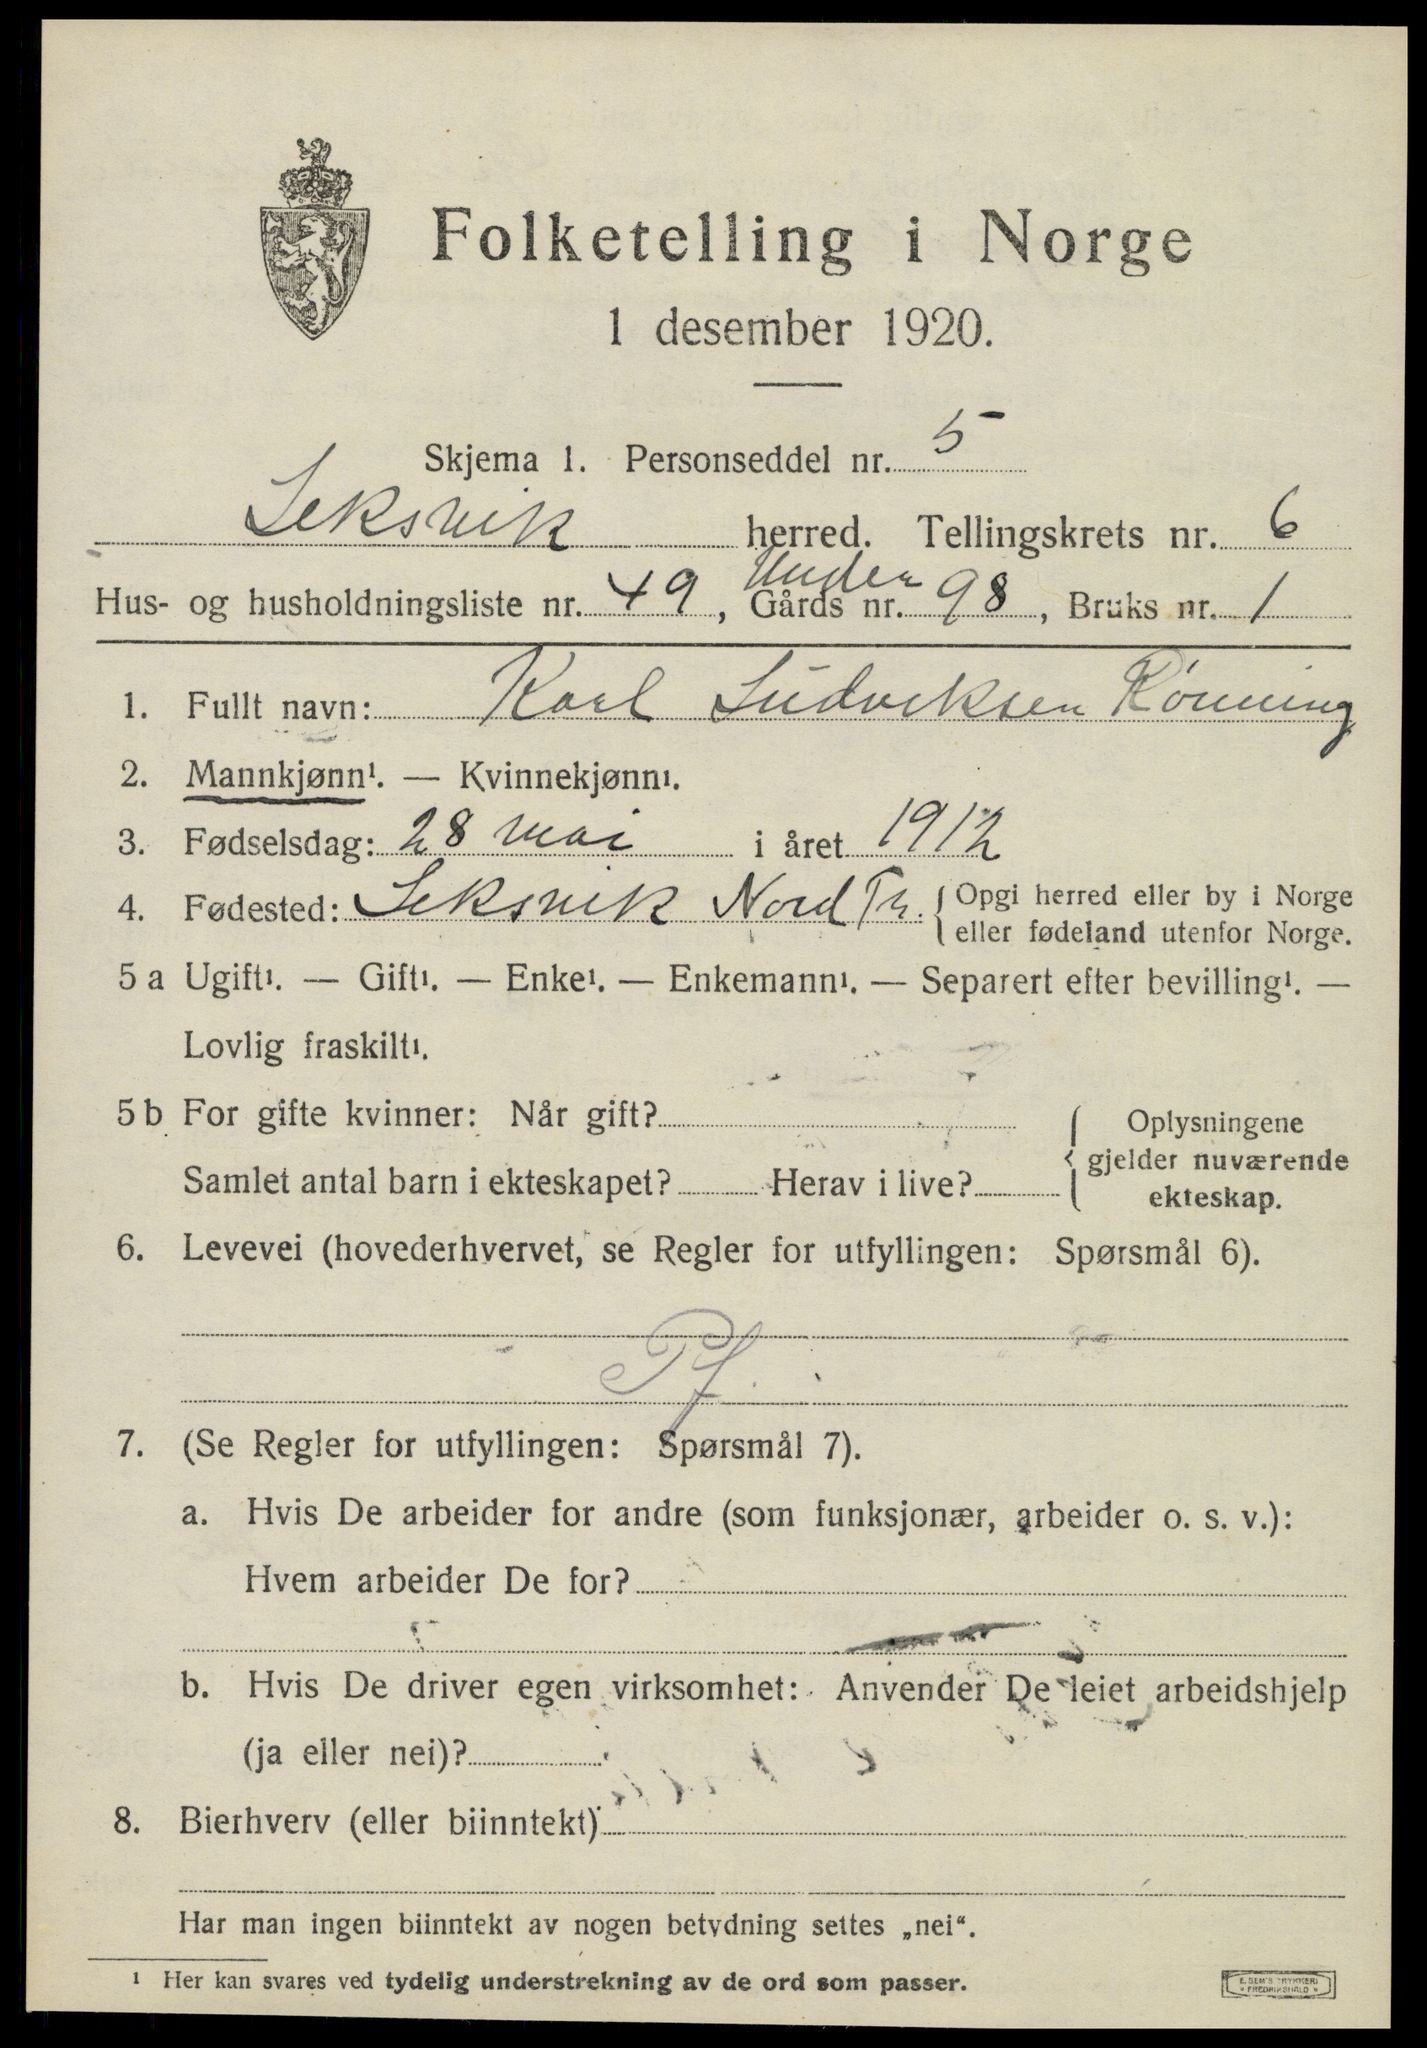 Folketelling i Norge
1 desember 1920.
Skjema 1. Personseddel nr. 5
Leksvik herred. Tellingskrets nr. 6
Under
Hus- og husholdningsliste nr. 49, Gårds nr. 98, Bruks nr. 1
1. Fullt navn: Karl Ludviksen Rönning
2. Mannkjønn¹. — Kvinnekjønn¹.
3. Fødselsdag: 28 mai i året 1912
4. Fødested: Leksvik Nord Tr. Opgi herred eller by i Norge
eller fødeland utenfor Norge.
5 a Ugift¹. — Gift¹. — Enke¹. — Enkemann¹. — Separert efter bevilling¹. —
Lovlig fraskilt¹.
5 b For gifte kvinner: Når gift? Oplysningene
gjelder nuværende
Samlet antal barn i ekteskapet? Herav i live? ekteskap.
6. Levevei (hovederhvervet, se Regler for utfyllingen: Spørsmål 6).
Pf
7. (Se Regler for utfyllingen: Spørsmål 7).
a. Hvis De arbeider for andre (som funksjonær, arbeider o. s. v.):
Hvem arbeider De for?
b. Hvis De driver egen virksomhet: Anvender De leiet arbeidshjelp
(ja eller nei)?
8. Bierhverv (eller biinntekt)
Har man ingen biinntekt av nogen betydning settes „nei“.
¹ Her kan svares ved tydelig understrekning av de ord som passer.
E. SEM'S TRYKKERI
FREDRIKSHALD